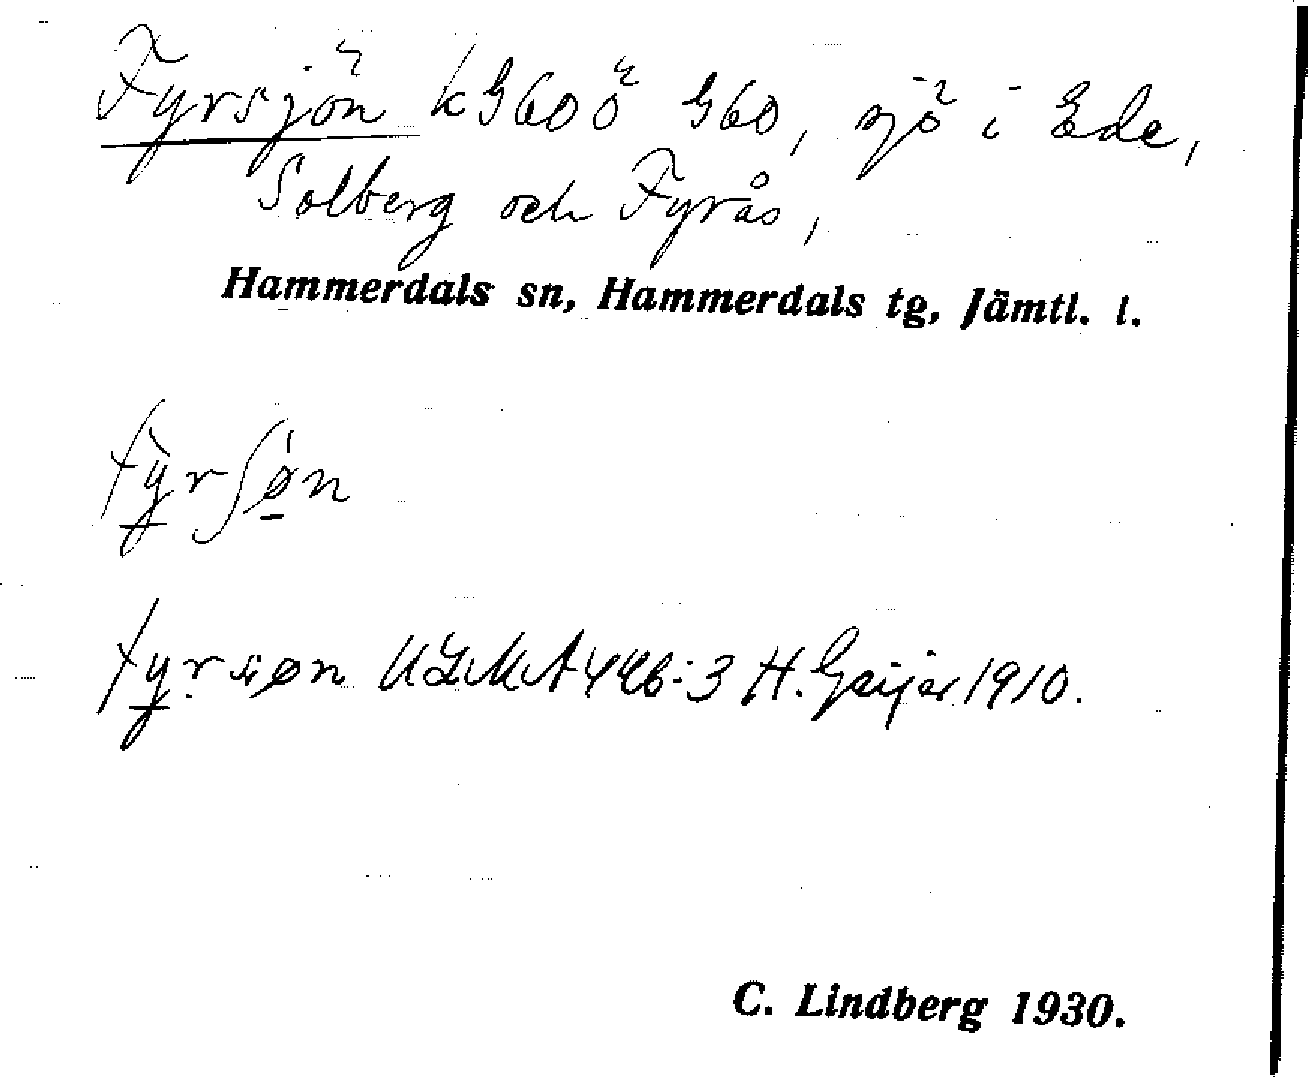 Fyrsjön k G60 ö G60, sjö i Ede,
Solberg och Fyrås,
Hammerdals sn, Hammerdals tg, Jämtl. l.
fy̲rʃø̲n
ULMA 446:3 H. Geijer 1910.
C. Lindberg 1930.